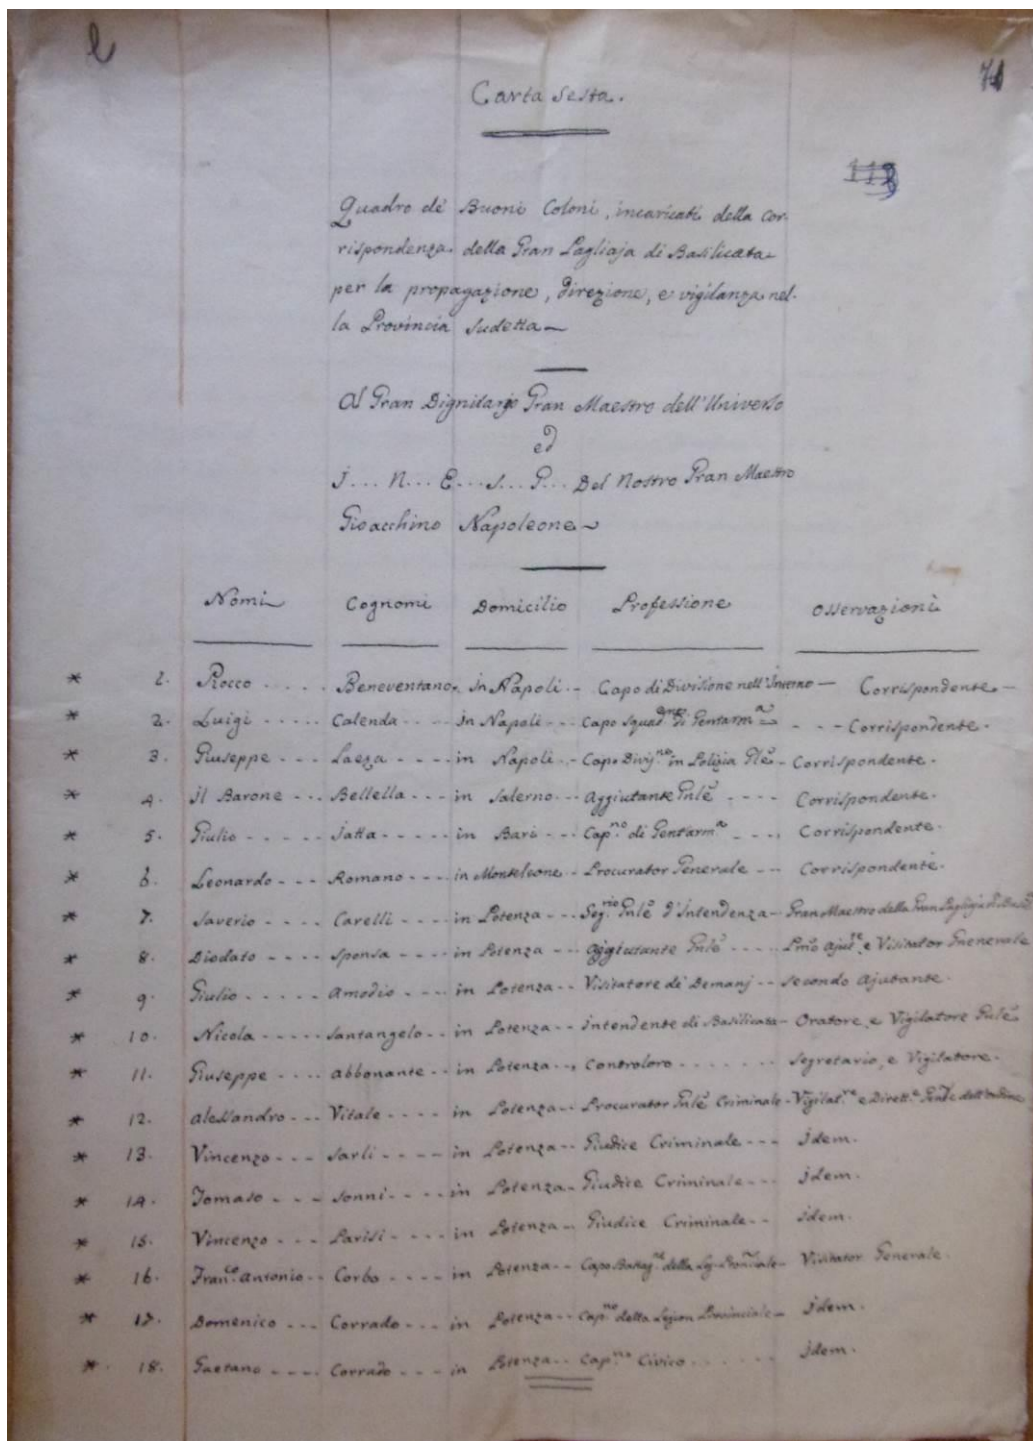 l
71
Carta Sesta.
113
Quadro de' Buoni Coloni, incaricati della cor-
rispondenza della Gran Pagliaja di Basilicata
per la propagazione, direzione, e vigilanza nel-
la Provincia sudetta
Al Gran Dignitario Gran Maestro dell'Universo
ed
J... N... E... S... P... Del Nostro Gran Maestro
Gioacchino Napoleone
Nomi Cognomi Domicilio Professione Osservazioni
* 1. Rocco .... Beneventano. in Napoli.. Capo di Divisione nell'Interno — Corrispondente.—
* 2. Luigi ..... Calenda .... in Napoli... Capo Squadne di Gentarma - - - Corrispondente.
* 3. Giuseppe ... Laeza ..... in Napoli.. Capo Divne in Polizia Gle - Corrispondente.
* 4. Il Barone ... Bellella ... in Salerno... Aggiutante Gnle .... Corrispondente.
* 5. Giulio ..... Jatta ..... in Bari ... Capno di Gentarma ..., Corrispondente.
* 6. Leonardo ... Romano .... in Monteleone.. Procurator Generale ... Corrispondente.
* 7. Saverio .... Carelli .... in Potenza ... Segrio Gnle d'Intendenza - Gran Maestro della Gran Pagliaja di
* 8. Diodato .... Sponsa .... in Potenza ... Aggiutante Gnle ..... Pmo Ajute e Visitator Gnenerale
* 9. Giulio ..... Amodio .... in Potenza .. Visitatore di Demanj .. Secondo Ajutante.
* 10. Nicola ..... Santangelo .. in Potenza .. Intendente di Basilicata - Oratore, e Vigilatore Gnle
* 11. Giuseppe .... Abbonante .. in Potenza .. Controloro ....... Segretario, e Vigilatore.
* 12. Alessandro ... Vitale .... in Potenza .. Procurator Gnle Criminale - Vigilatre e Dirett.e Gnle dell'ordine
* 13. Vincenzo ... Sarli .... in Potenza .. Giudice Criminale ... Idem.
* 14. Tomaso .... Sonni .... in Potenza .. Giudice Criminale ... Idem.
* 15. Vincenzo ... Parisi .... in Potenza .. Giudice Criminale .. Idem.
* 16. Franco Antonio .. Corbo .... in Potenza .. Capo Battagne della Leg. Provinciale - Visitator Generale.
* 17. Domenico ... Corrado ... in Potenza .. Capno della Legion Provinciale - Idem.
* 18. Gaetano .... Corrado ... in Potenza .. Capno Civico ...... Idem.